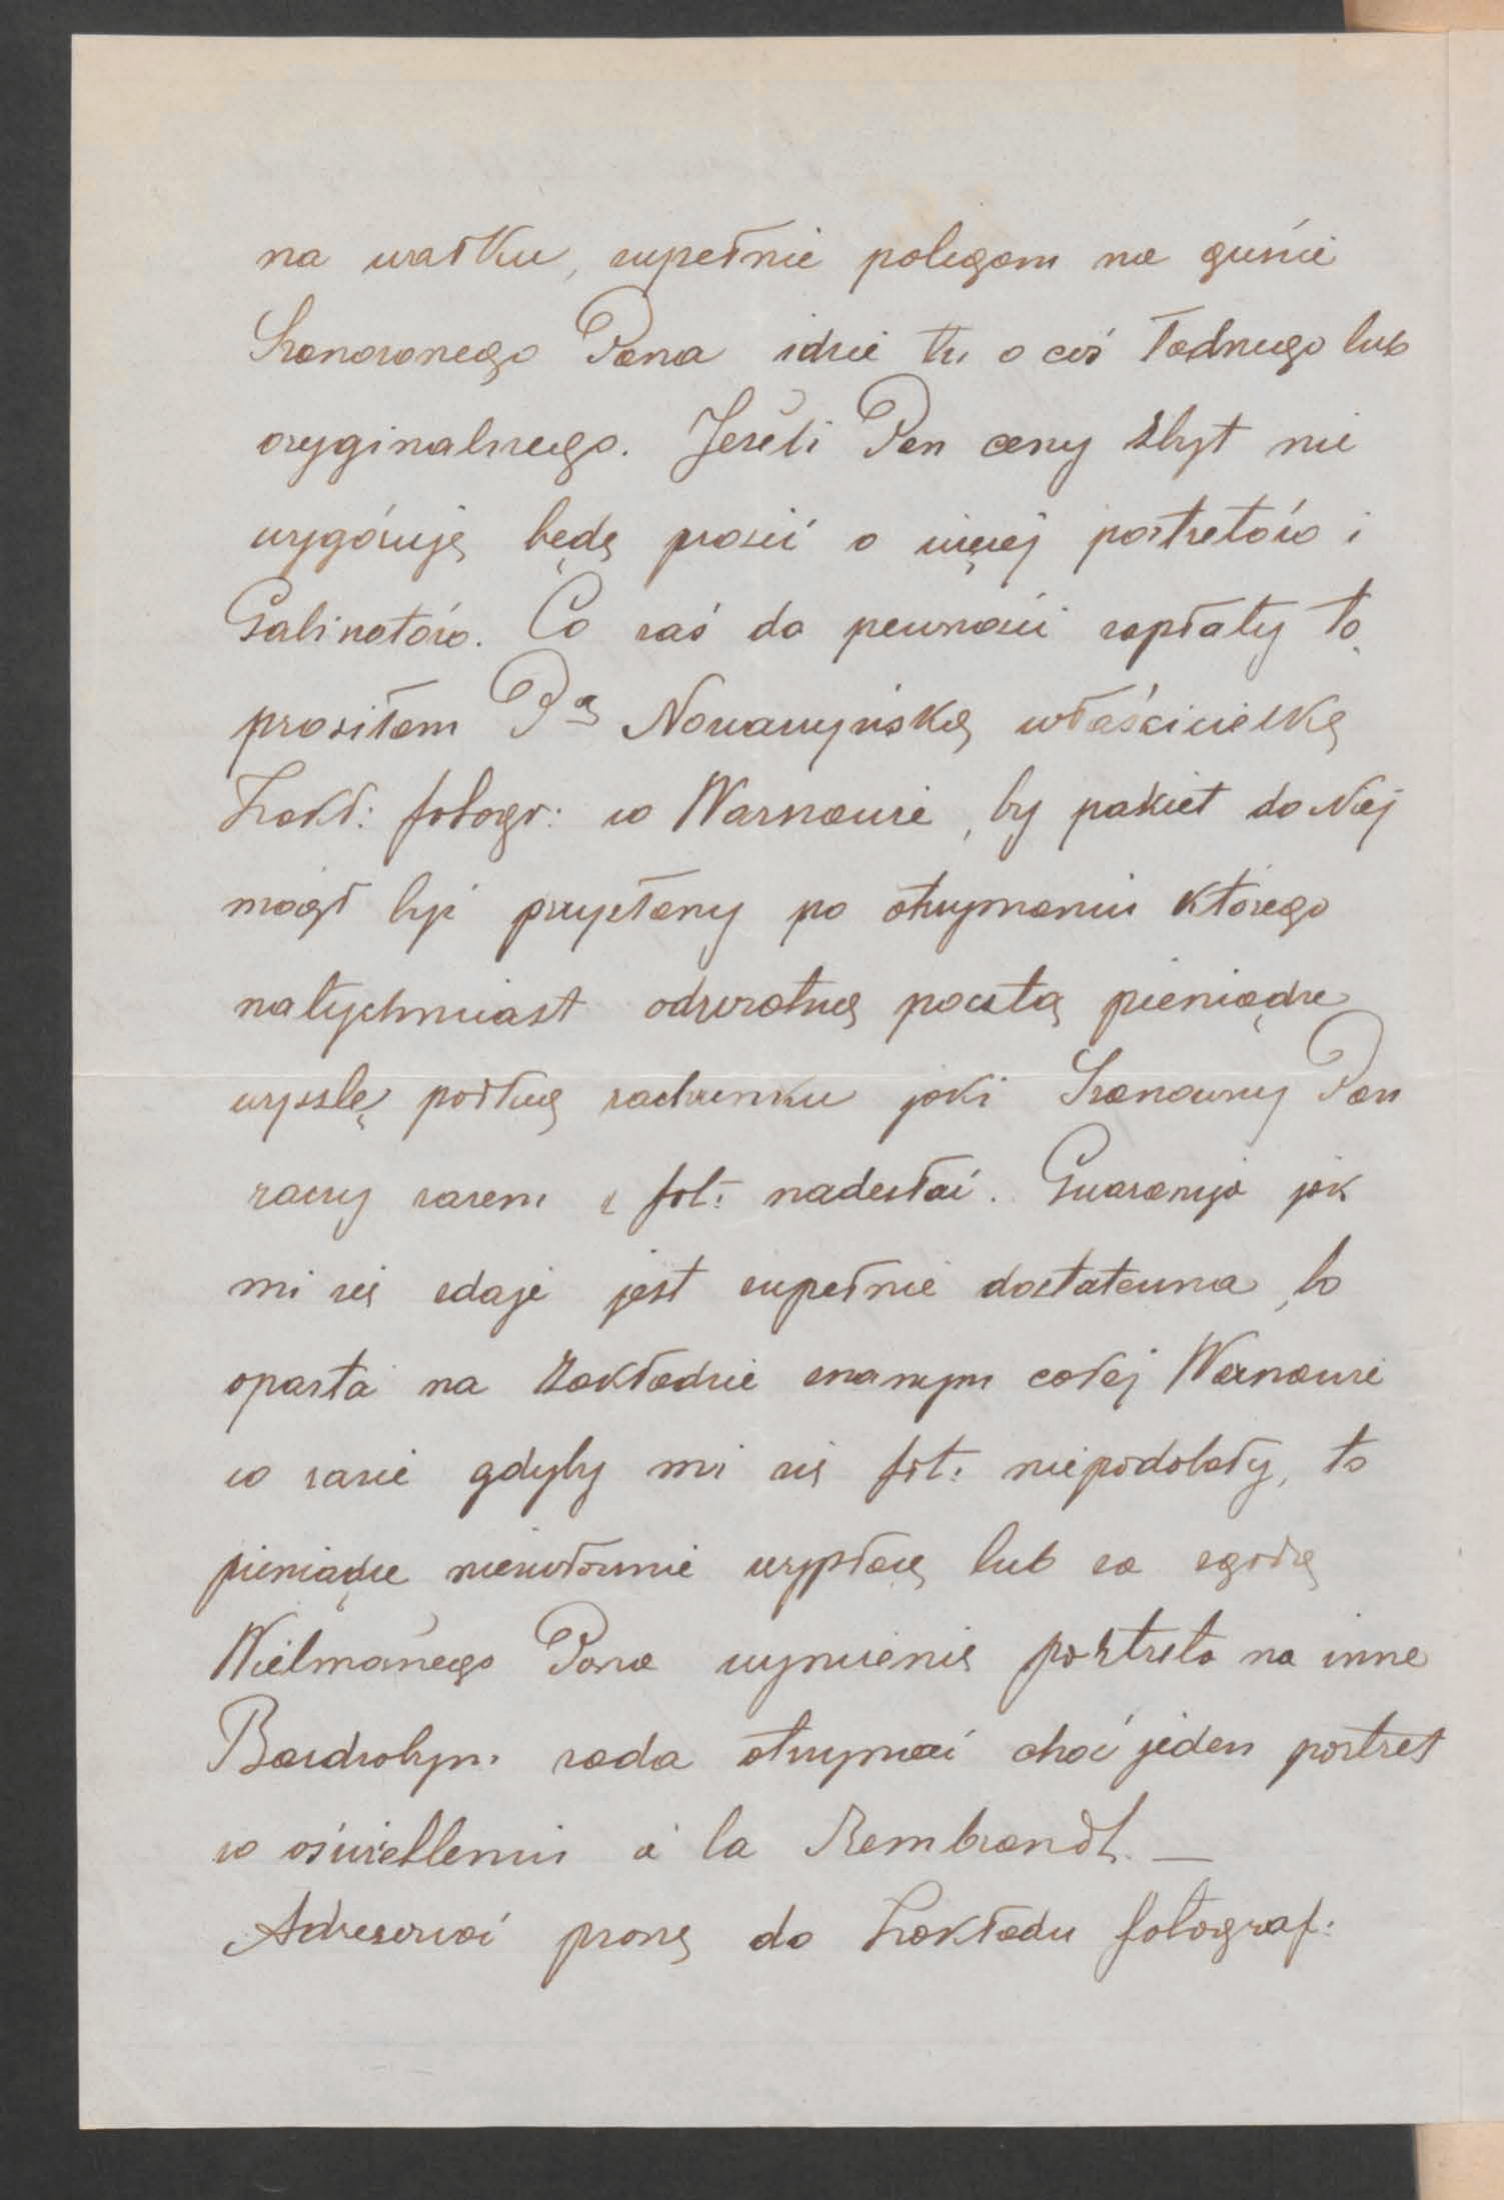 na wałku, zupełnie polegam na guście
Szanownego Pana idzie tu o coś ładnego lub
oryginalnego. Jeżeli Pan ceny zbyt nie
wygóruje będę prosić o więcej portretów i
Gabinetów. Co zaś do pewności zapłaty to
prosiłam Pą Nowaczyńską właścicielkę
Zakł: fotogr: w Warszawie, by pakiet do Niej
mógł być przysłany po otrzymaniu którego
natychmiast odwrotną pocztą pieniądze
wyszlę podług rachunku jaki Szanowny Pan
raczy razem z fot: nadesłać. Gwarancja jak
mi się zdaje jest zupełnie dostateczna, bo
oparta na Zakładzie znanym całej Warszawie
w razie gdyby mi się fot: niepodobały, to
pieniądze niezwłocznie wypłacę lub za zgodą
Wielmożnego Pana wymienię portreta na inne
Bardzobym rada otrzymać choć jeden portret
w oświetleniu à la Rembrandt. —
Adresować proszę do Zakładu fotograf: